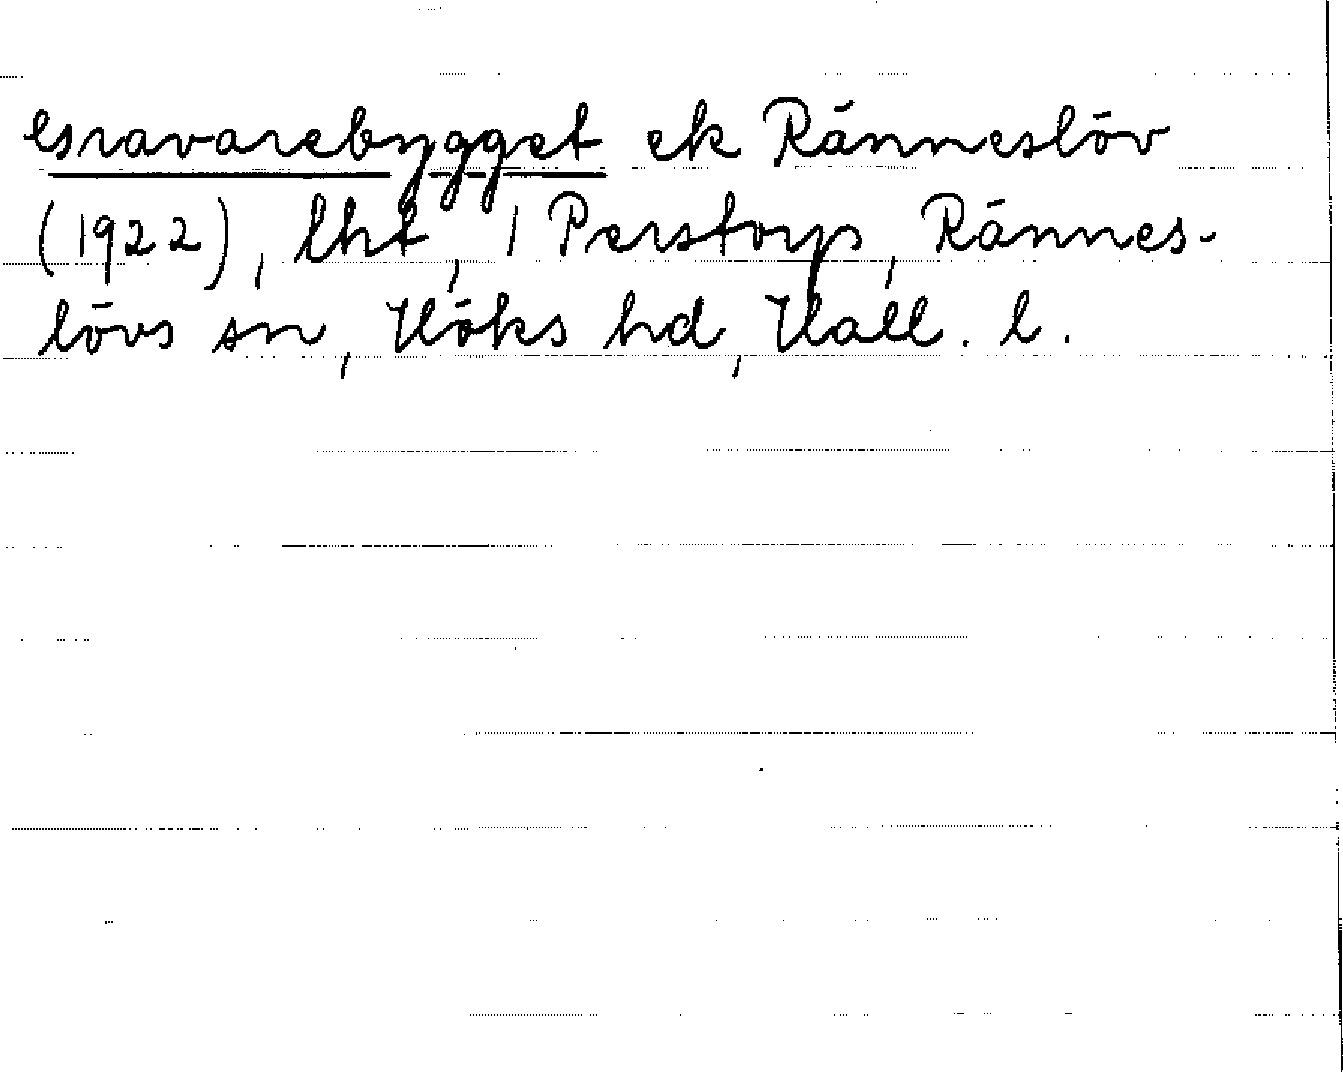 Gravarebygget ek Ränneslöv
(1922), lht, 1 Perstorp, Rännes-
lövs sn, Höks hd, Hall. l.